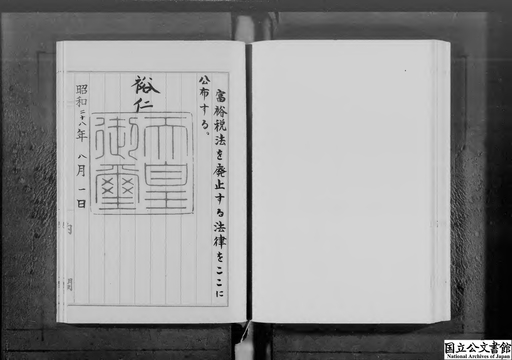 富裕税法を廃止する法律をここに
公布する、
裕仁
天皇
御璽
昭和二十八年八月一日
国立公文書館
National Archives of Japan